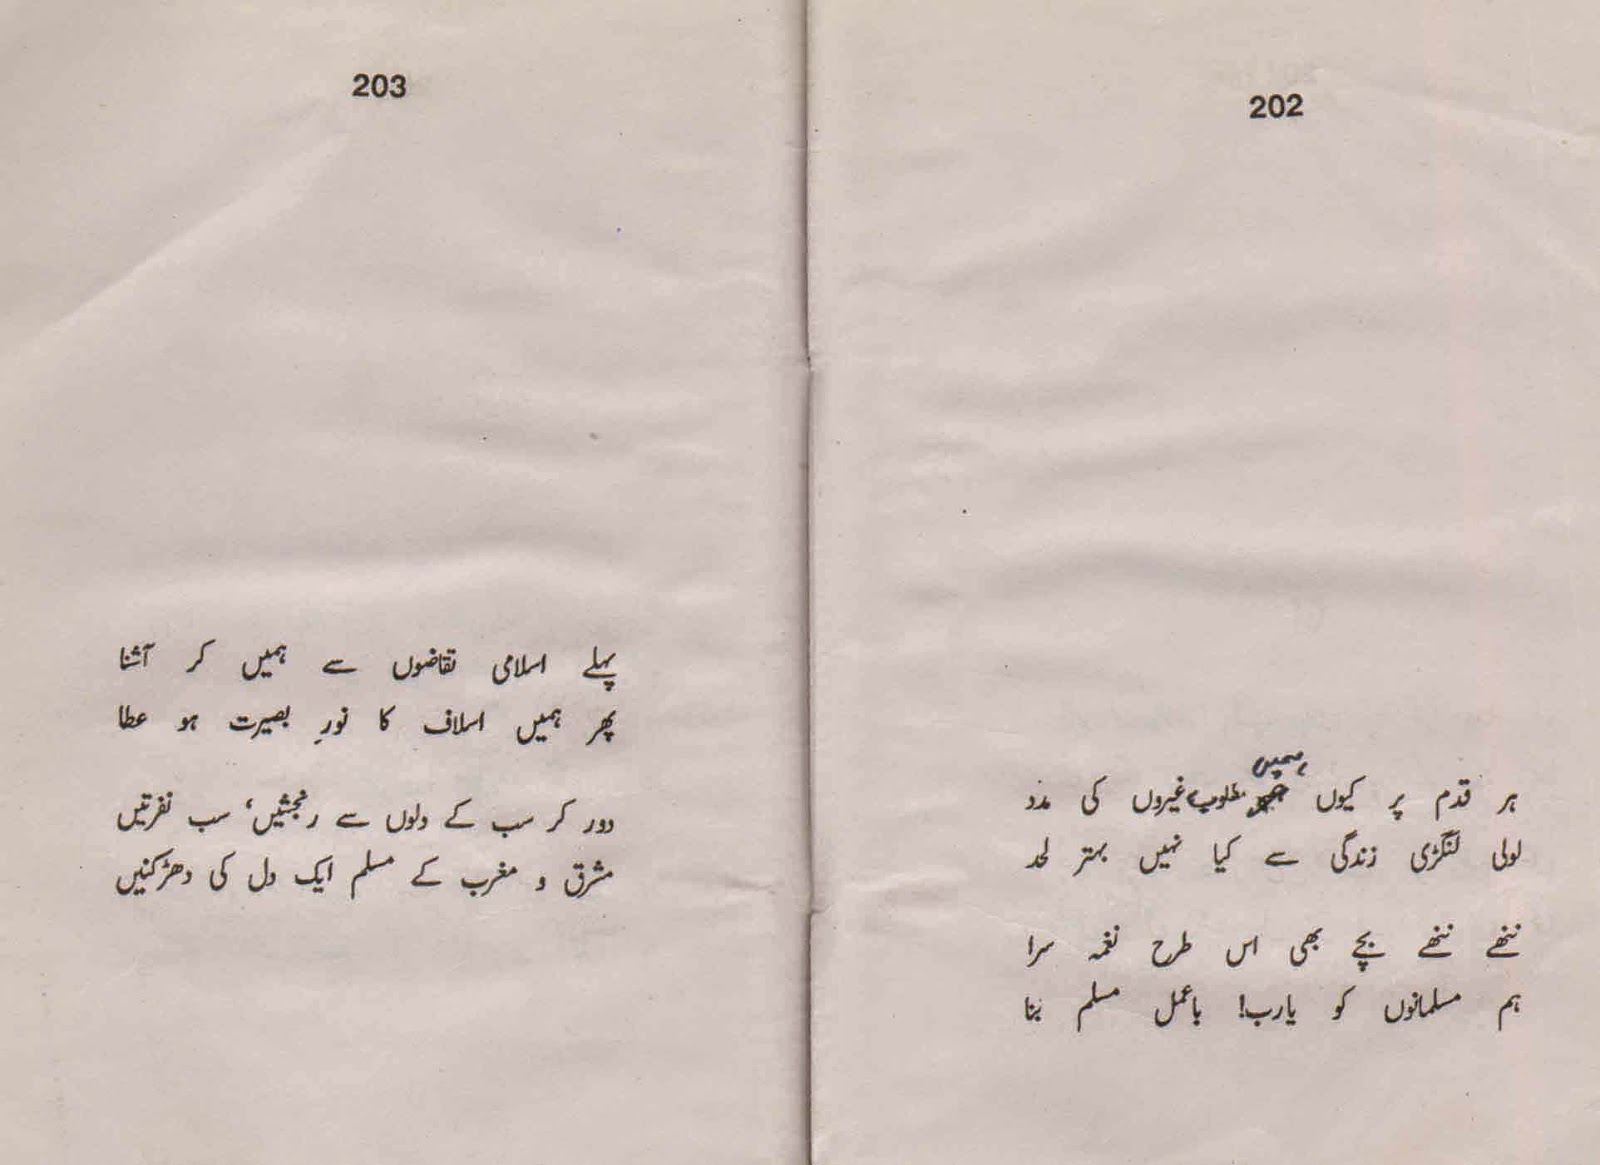 202
ہر قدم پر کیوں ہمیں مطلوب غیروں کی مدد
لولی لنگڑی زندگی سے کیا نہیں بہتر لحد
ننھے ننھے بچے بھی اس طرح نغمہ سرا
ہم مسلمانوں کو یارب! باعمل مسلم بنا
203
پہلے اسلامی تقاضوں سے ہمیں کر آشنا
پھر ہمیں اسلاف کا نورِ بصیرت ہو عطا
دور کر سب کے دلوں سے رنجشیں، سب نفرتیں
مشرق و مغرب کے مسلم ایک دل کی دھڑکنیں